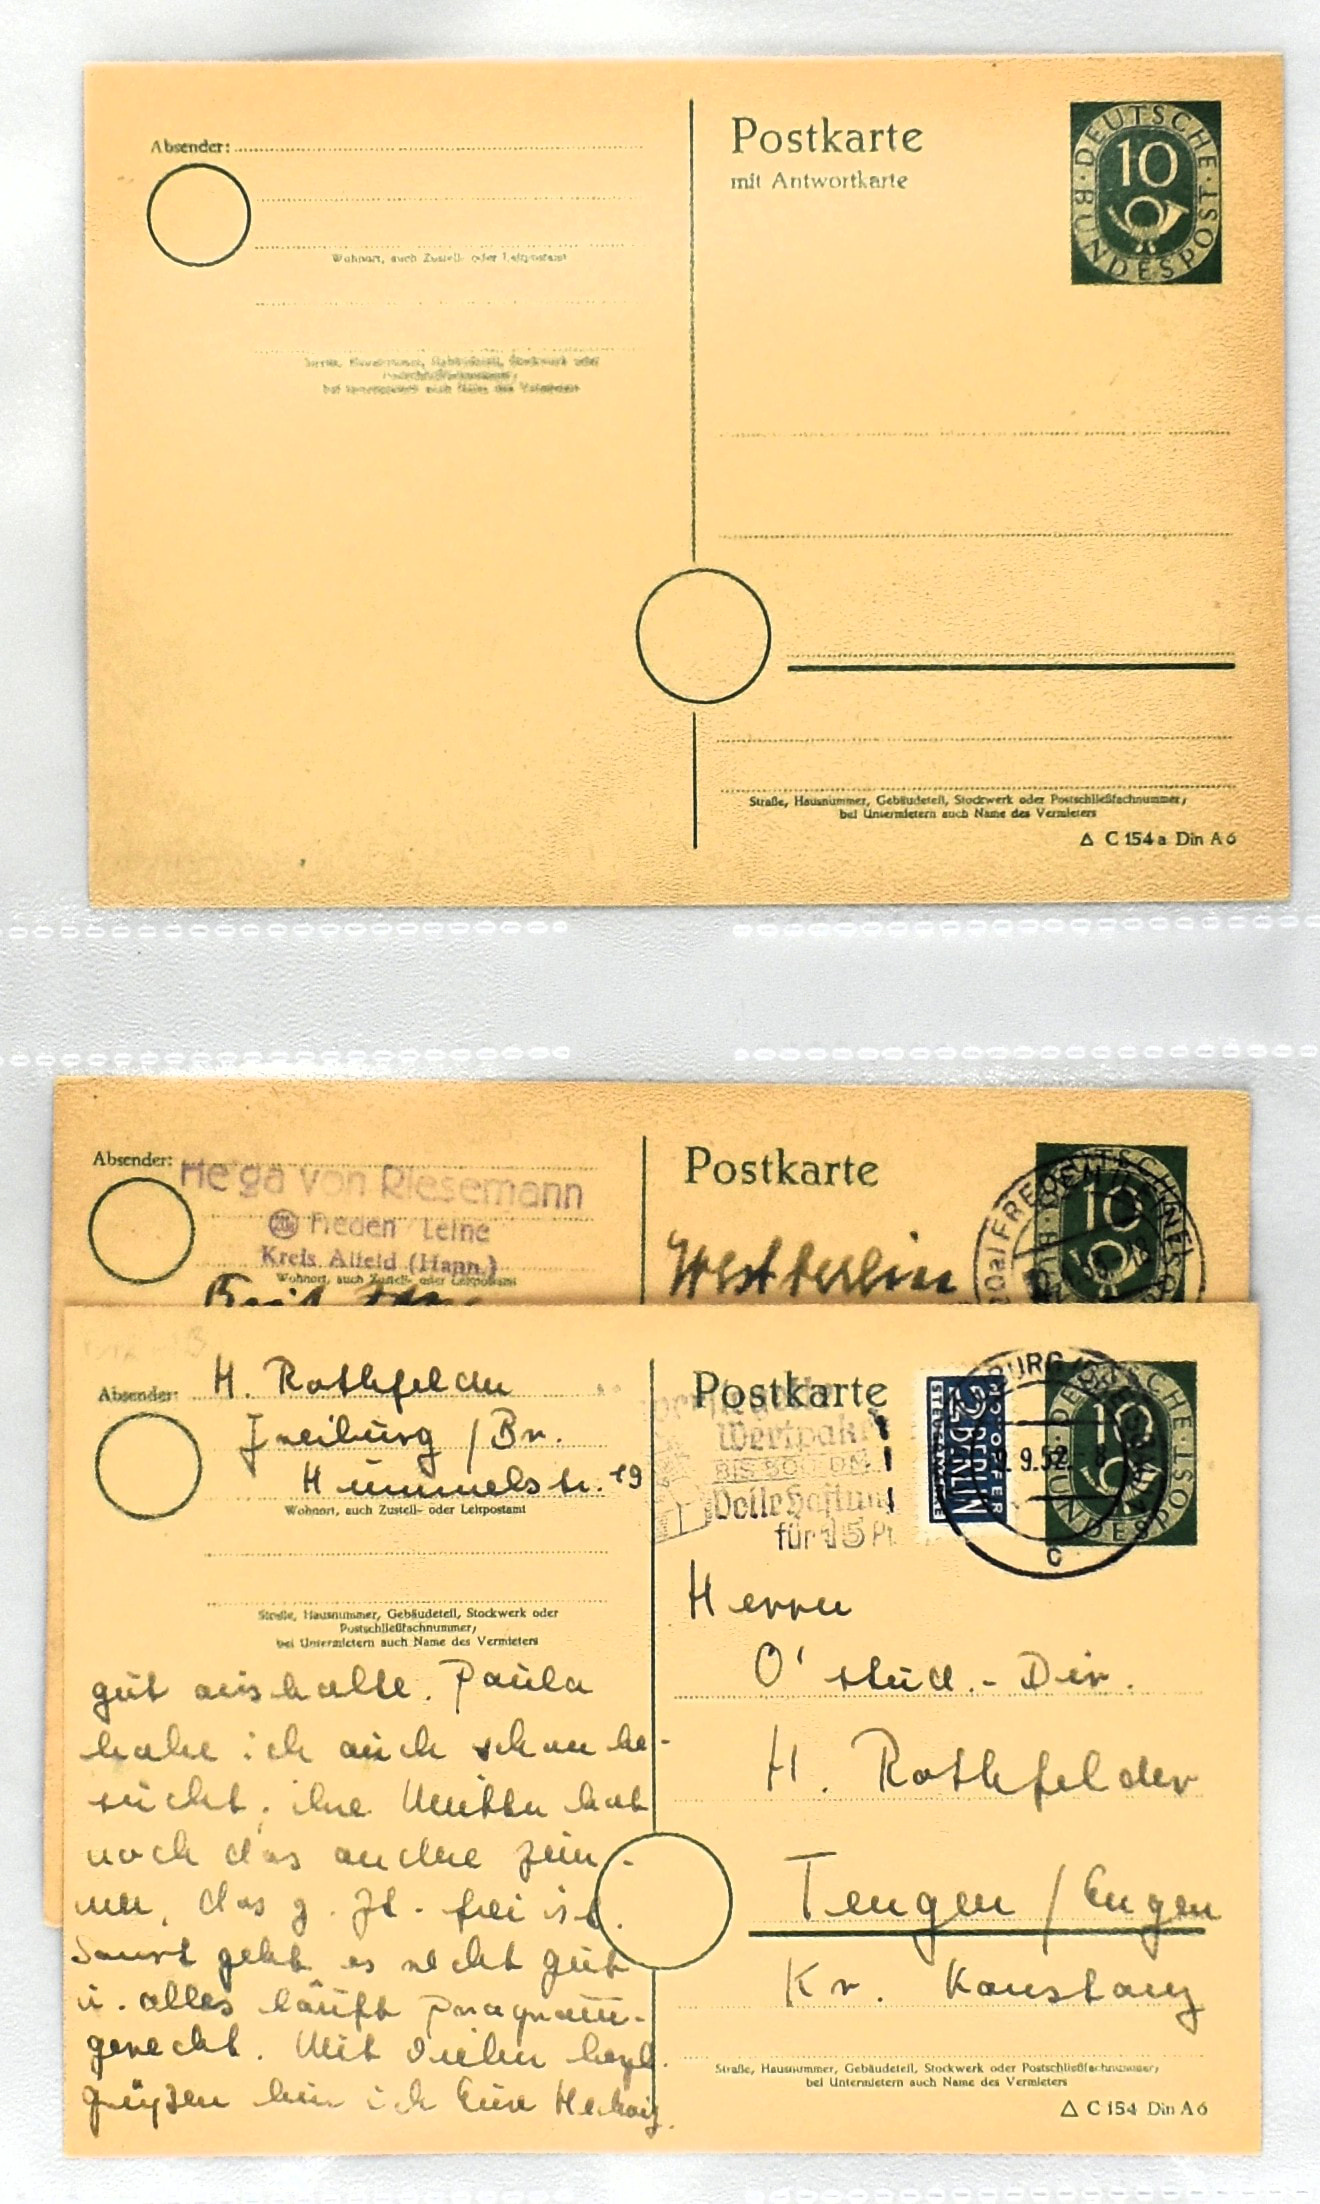 Absender:
Postkarte
mit Antwortkarte
DEUTSCHE BUNDESPOST
10
Wohnort, auch Zustell- oder Leitpostamt
bei Untermietern auch Name des Vermieters
Straße, Hausnummer, Gebäudeteil, Stockwerk oder Postschließfachnummer,
bei Untermietern auch Name des Vermieters
△ C 154 a Din A 6
Absender:
Helga von Riesemann
Freden / Leine
Kreis Alfeld (Hann.)
Wohnort, auch Zustell- oder Leitpostamt
Postkarte
10
Westberlin
Absender:
H. Rothfelder
Freiburg / Br.
Hummelstr. 19
Wohnort, auch Zustell- oder Leitpostamt
Straße, Hausnummer, Gebäudeteil, Stockwerk oder
Postschließfachnummer,
bei Untermietern auch Name des Vermieters
gut aushalte. Paula
habe ich auch schon be-
sucht, ihre Mutter hat
noch das andere Zim-
mer, das z. Zt. frei ist.
Sonst geht es recht gut
u. alles läuft programm-
gerecht. Mit vielen herzl.
Grüßen bin ich Eure Hedwig.
Postkarte
Wertpaket
BIS 500 DM
Volle Haftung
für 15 Pf
NOTOPFER
2 BERLIN
STEUERMARKE
9.9.52.-8
c
DEUTSCHE BUNDESPOST
10
Herrn
O'stud.-Dir.
H. Rothfelder
Tengen / Engen
Kr. Konstanz
Straße, Hausnummer, Gebäudeteil, Stockwerk oder Postschließfachnummer,
bei Untermietern auch Name des Vermieters
△ C 154 Din A 6